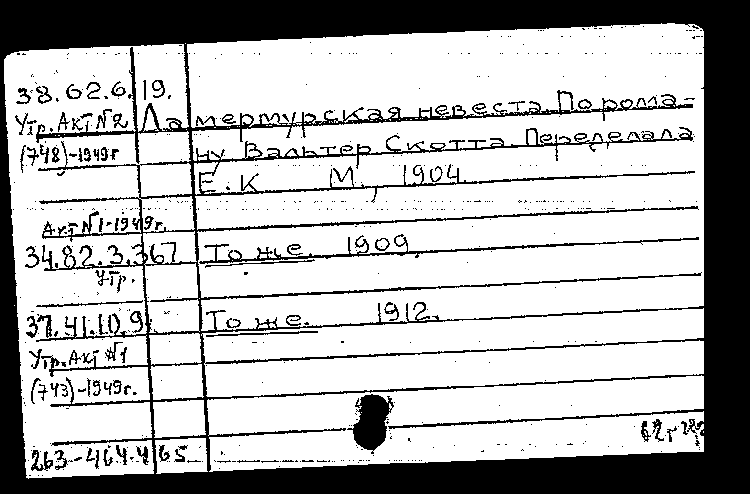 38.62.6.19.
Утр. Акт №2 Ламермурская невеста. По рома-
(748)-1949г ну Вальтер Скотта. Переделала
Е. К М., 1904
Акт №1-1949г.
34.82.3.367 То же. 1909.
Утр.
37.41.10.9. То же. 1912.
Утр. Акт №1
(743)-1949г.
263-464.465